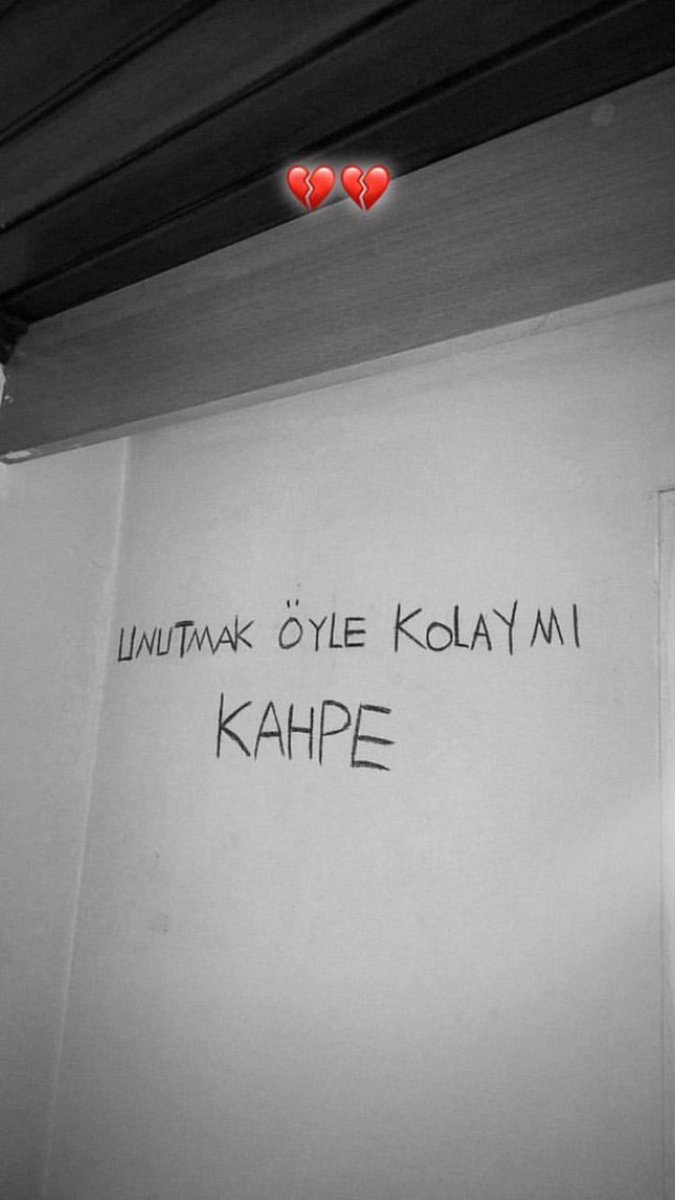 UNUTMAK ÖYLE KOLAYMI
KAHPE